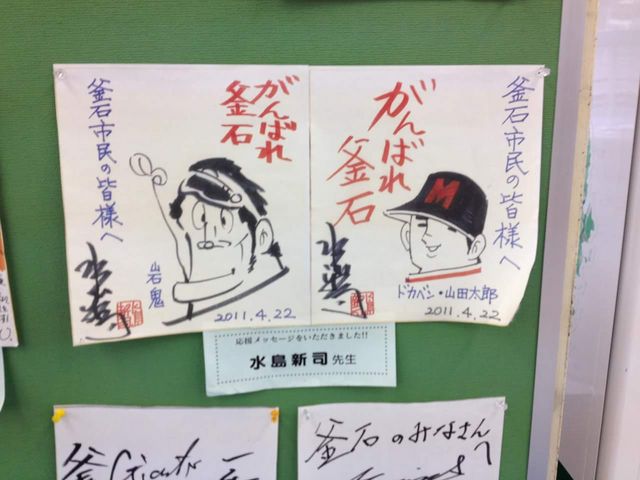 がんばれ
釜石
釜石市民の皆様へ
岩鬼
2011.4.22
釜石市民の皆様へ
がんばれ
釜石
M
ドカベン・山田太郎
2011.4.22
応援メッセージをいただきました!!
水島新司先生
釜石のみなさんへ